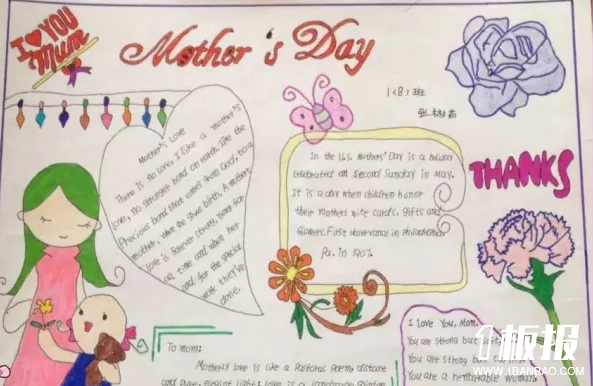 I ♥ YOU
Mum
Mother's Day
1(8)班
Mother's Love
There is no love, like a mother's
love, no stronger bond on earth. Like the
Precious bond that comes from God, to a
mother, when she gives birth. A mother's
love is forever strong, never for
all time and when her
and for the special
work they've
done.
In the U.S. Mothers' Day is a holiday
celebrated on second Sunday in May.
It is a day when children honor
their mothers wite cards, gifts and
flowers. First observance in Philadelphia
Pa. in 1907.
THANKS
To mum:
Motherly love is like a Pastoral Poems, distant
and Pure, elegint light; Love is a landscape painting
I love You, Mom.
You are strong but
You are strong but
You are a remarkable Woman
板报
WWW.1BANBAO.COM